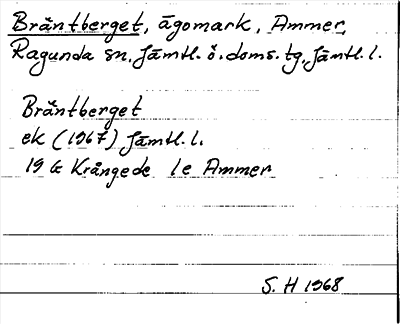 Bräntberget, ägomark, Ammer,
Ragunda sn, Jämtl. ö. doms. tg, Jämtl. l.
Bräntberget
ek (1967) Jämtl. l.
19 G Krångede 1 e Ammer
S. H 1968